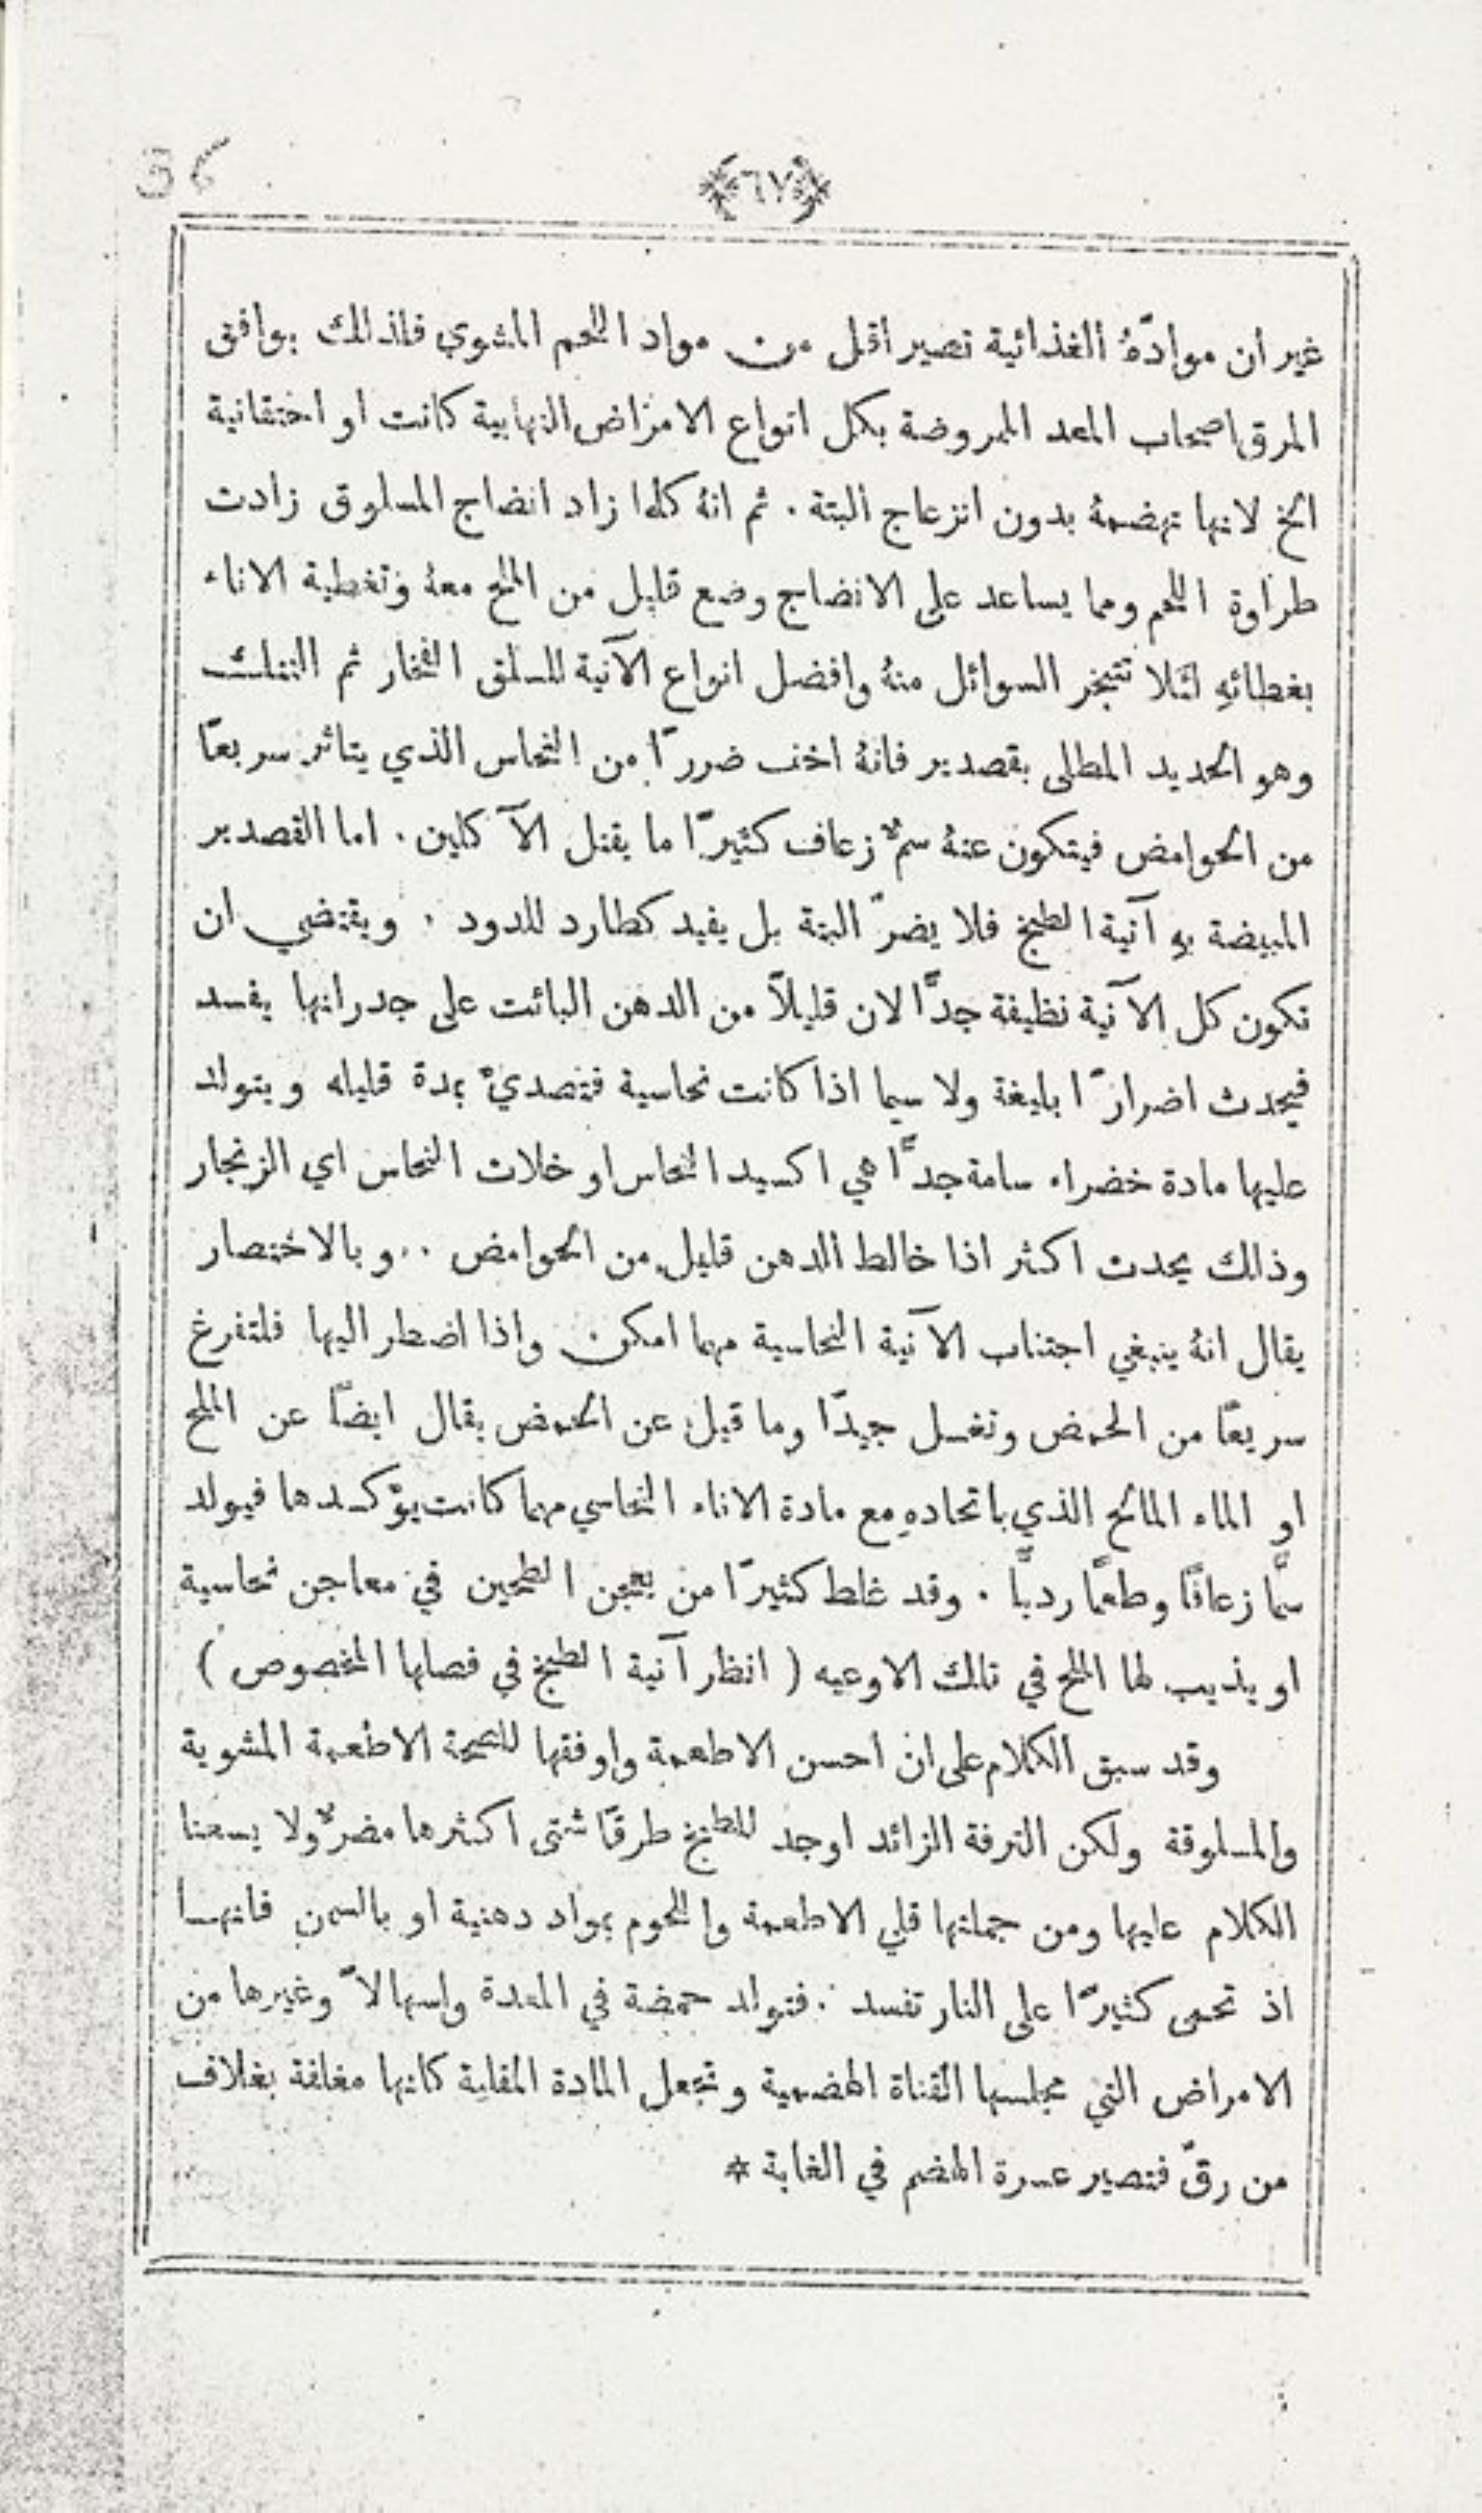 36
﴿٦٧﴾
غير ان موادّهُ الغذائية تصير اقل من مواد اللحم المشوي فلذلك يوافق
المرق اصحاب المعد الممروضة بكل انواع الامراض التهابية كانت او احتقانية
الخ لانها تهضمهُ بدون انزعاج البتة . ثم انهُ كلما زاد انضاج المسلوق زادت
طراوة اللحم ومما يساعد على الانضاج وضع قليل من الملح معهُ وتغطية الاناء
بغطائهِ لئلا تتبخر السوائل منهُ وافضل انواع الآنية للسلق الفخار ثم التنك
وهو الحديد المطلى بقصدير فانهُ اخف ضررًا من النحاس الذي يتاثر سريعًا
من الحوامض فيتكون عنهُ سمٌ زعاف كثيرًا ما يقتل الآكلين . اما القصدير
المبيضة بهِ آنية الطبخ فلا يضرّ البتة بل يفيد كطارد للدود . ويقتضي ان
تكون كل الآنية نظيفة جدًّا لان قليلاً من الدهن البائت على جدرانها يفسد
فيحدث اضرارًا بليغة ولا سيما اذا كانت نحاسية فتصديّ بمدة قليله ويتولد
عليها مادة خضراء سامة جدًّا هي اكسيد النحاس او خلات النحاس اي الزنجار
وذلك يحدث اكثر اذا خالط الدهن قليل من الحوامض . . وبالاختصار
يقال انهُ ينبغي اجتناب الآنية النحاسية مهما امكن واذا اضطر اليها فلتفرغ
سريعًا من الحمض وتغسل جيدًا وما قيل عن الحمض يقال ايضًا عن الملح
او الماء المالح الذي باتحادهِ مع مادة الاناء النحاسي مهما كانت يؤكسدها فيولد
سمًّا زعافًا وطعمًا رديًّا . وقد غلط كثيرًا من يعجن الطحين في معاجن نحاسية
او يذيب لها الملح في تلك الاوعيه ( انظر آنية الطبخ في فصلها المخصوص )
وقد سبق الكلام على ان احسن الاطعمة واوفقها للصحة الاطعمة المشوية
والمسلوقة ولكن الترفة الزائد اوجد للطبخ طرقًا شتى اكثرها مضرٌّ ولا يسعنا
الكلام عليها ومن جملتها قلي الاطعمة واللحوم بمواد دهنية او بالسمن فانها
اذ تحمى كثيرًا على النار تفسد . فتولد حمضة في المعدة واسهالاً وغيرها من
الامراض التي مجلسها القناة الهضمية وتجعل المادة المقلية كانها مغلفة بغلاف
من رقّ فتصير عسرة الهضم في الغاية *